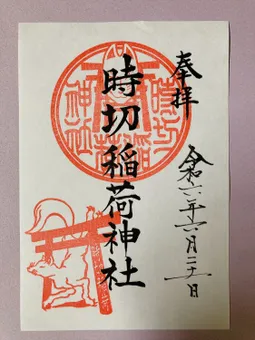 奉拝
時切稲荷神社
令和六年六月二十一日
時切稲荷神社